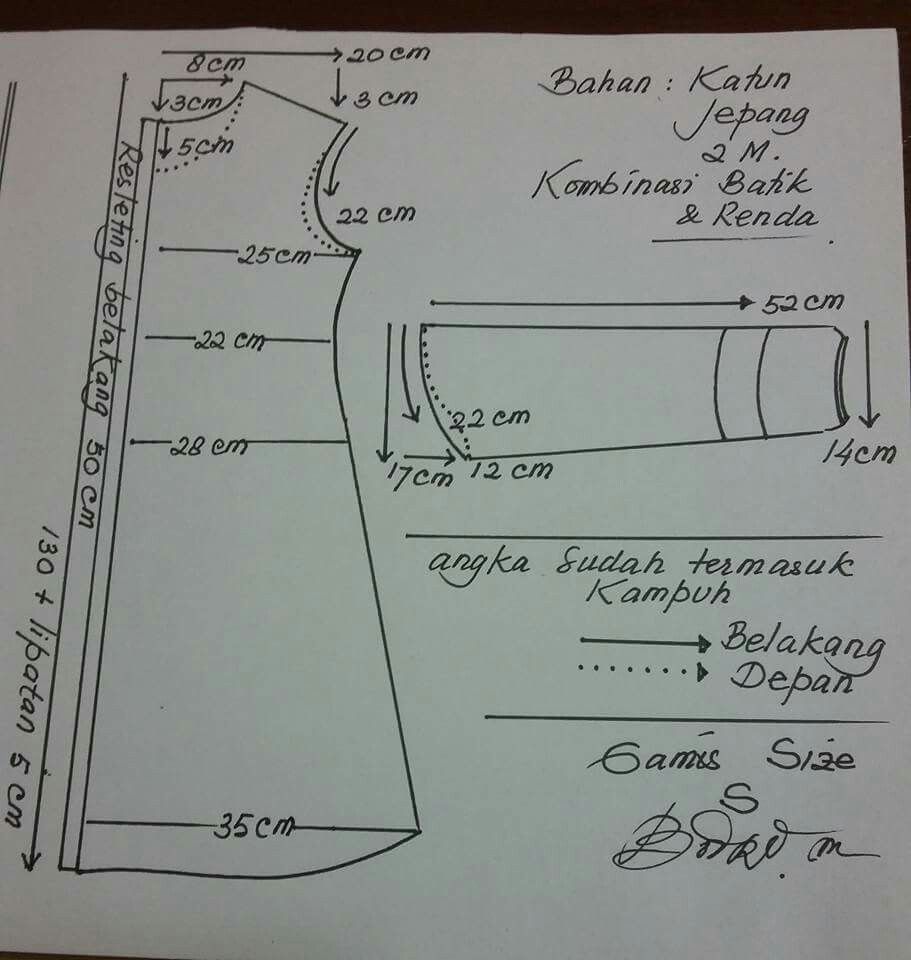 8 cm
20 cm
3 cm
3 cm
5 cm
22 cm
25 cm
22 cm
28 cm
35 cm
Resleting belakang 50 cm
130 + lipatan 5 cm
Bahan : Katun
Jepang
2 M.
Kombinasi Batik
& Renda
52 cm
22 cm
17 cm
12 cm
14 cm
angka Sudah termasuk
Kampuh
Belakang
Depan
Gamis Size
S